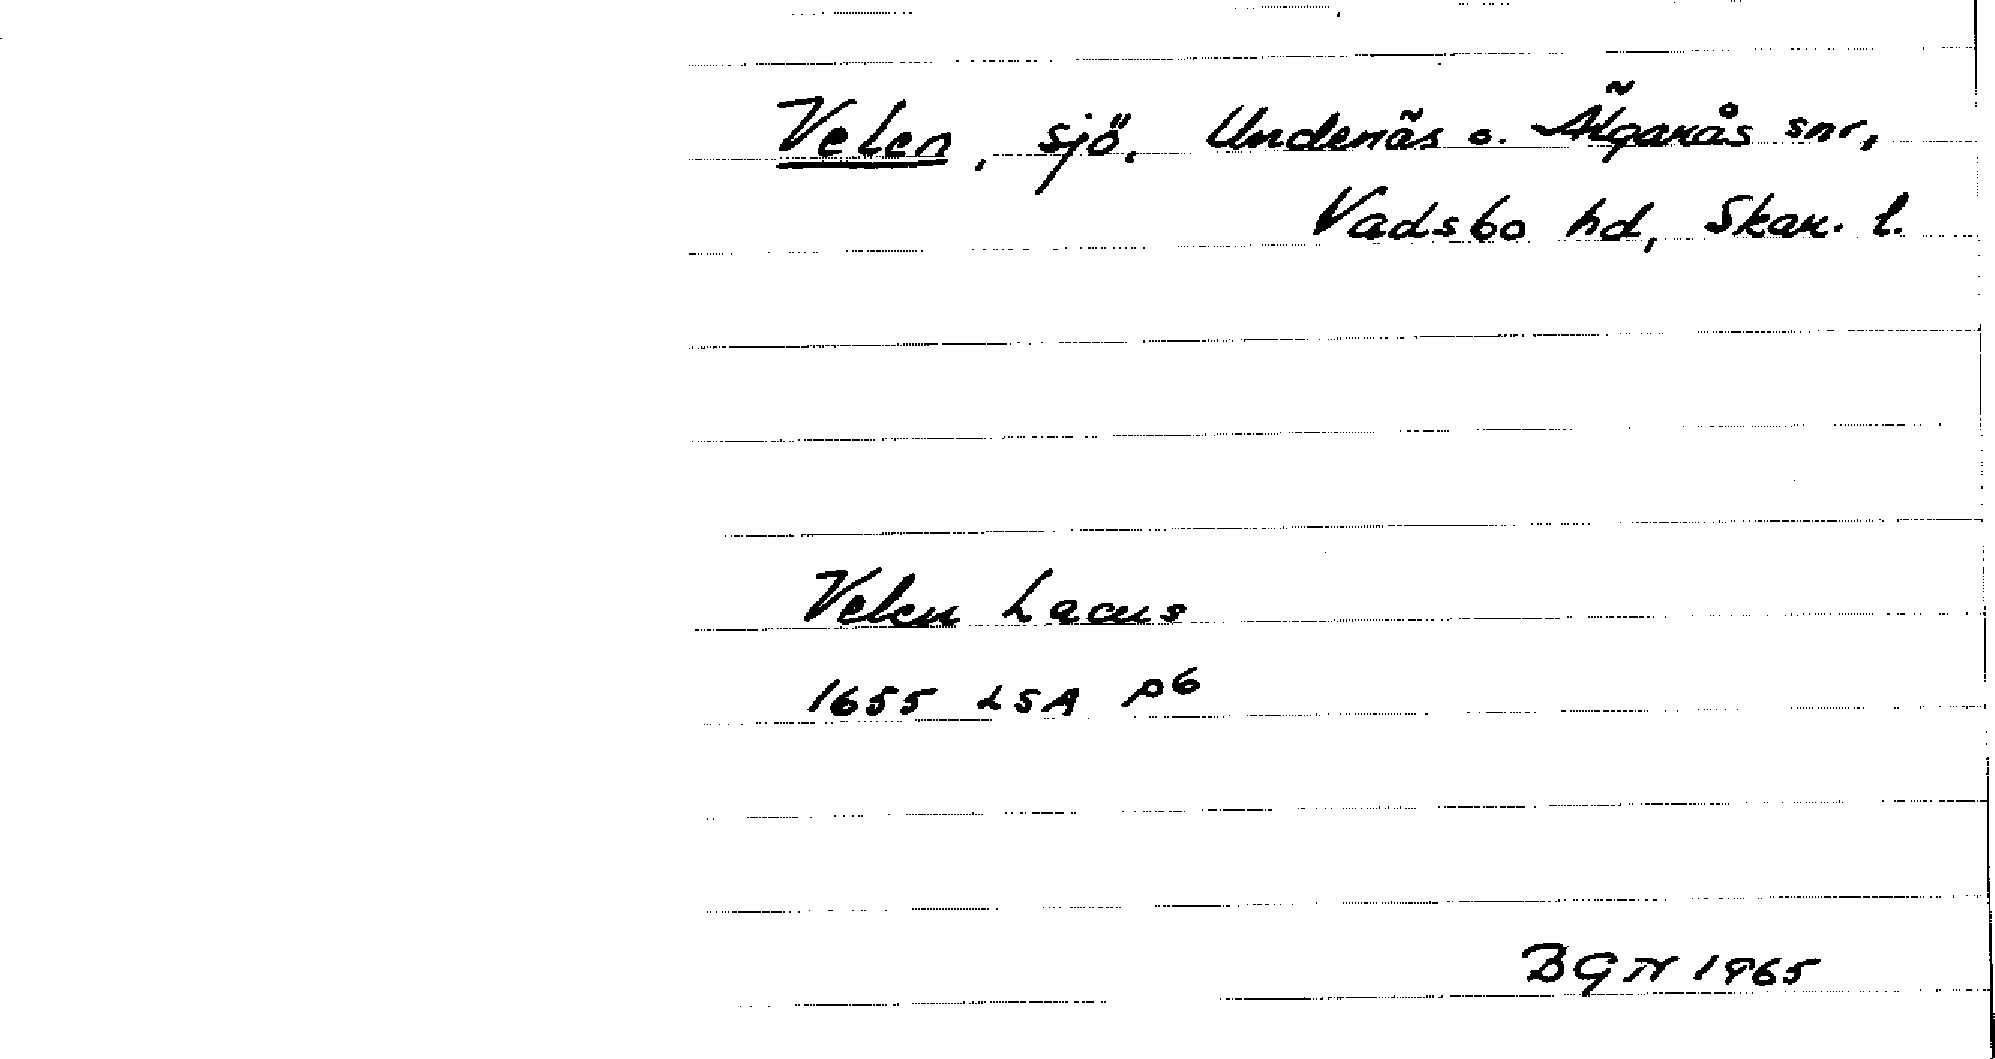 Velen, sjö. Undenäs o. Älgarås snr,
Vadsbo hd, Skar. l.
Velen Lacus
1655 LSA p6
BGN 1965